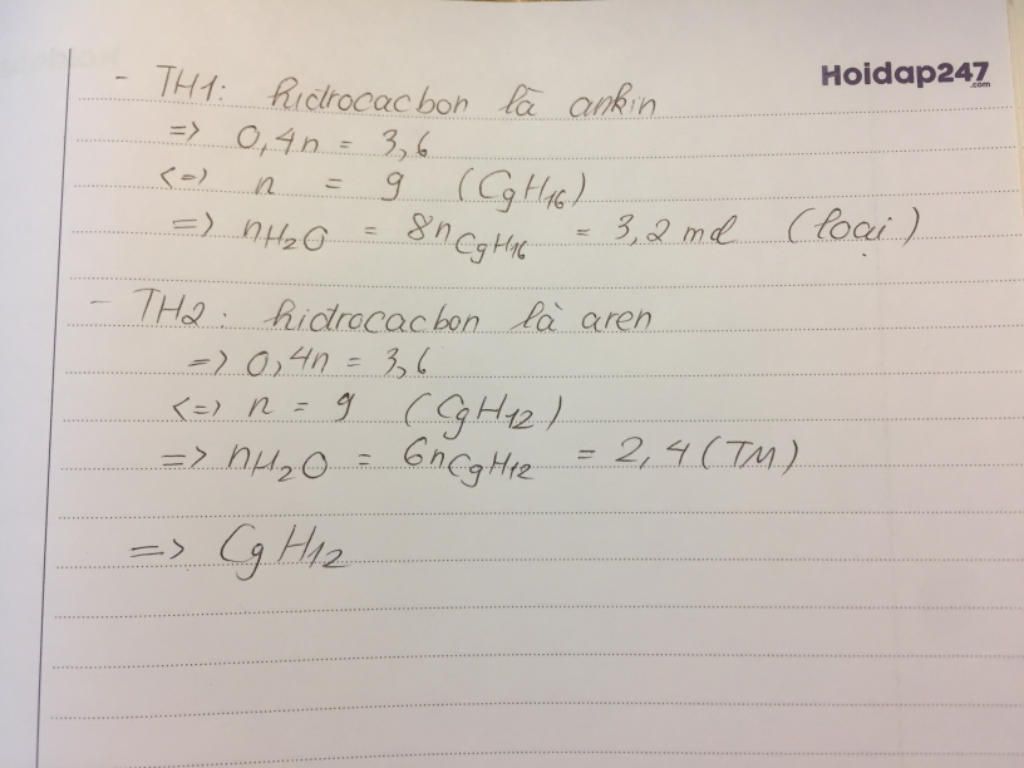 Hoidap247
.com
- TH1: hidrocacbon là ankin
=> 0,4n = 3,6
<=> n = 9 (C9H16)
=> nH2O = 8nC9H16 = 3,2 mol (loại)
- TH2: hidrocacbon là aren
=> 0,4n = 3,6
<=> n = 9 (C9H12)
=> nH2O = 6nC9H12 = 2,4 (TM)
=> C9H12